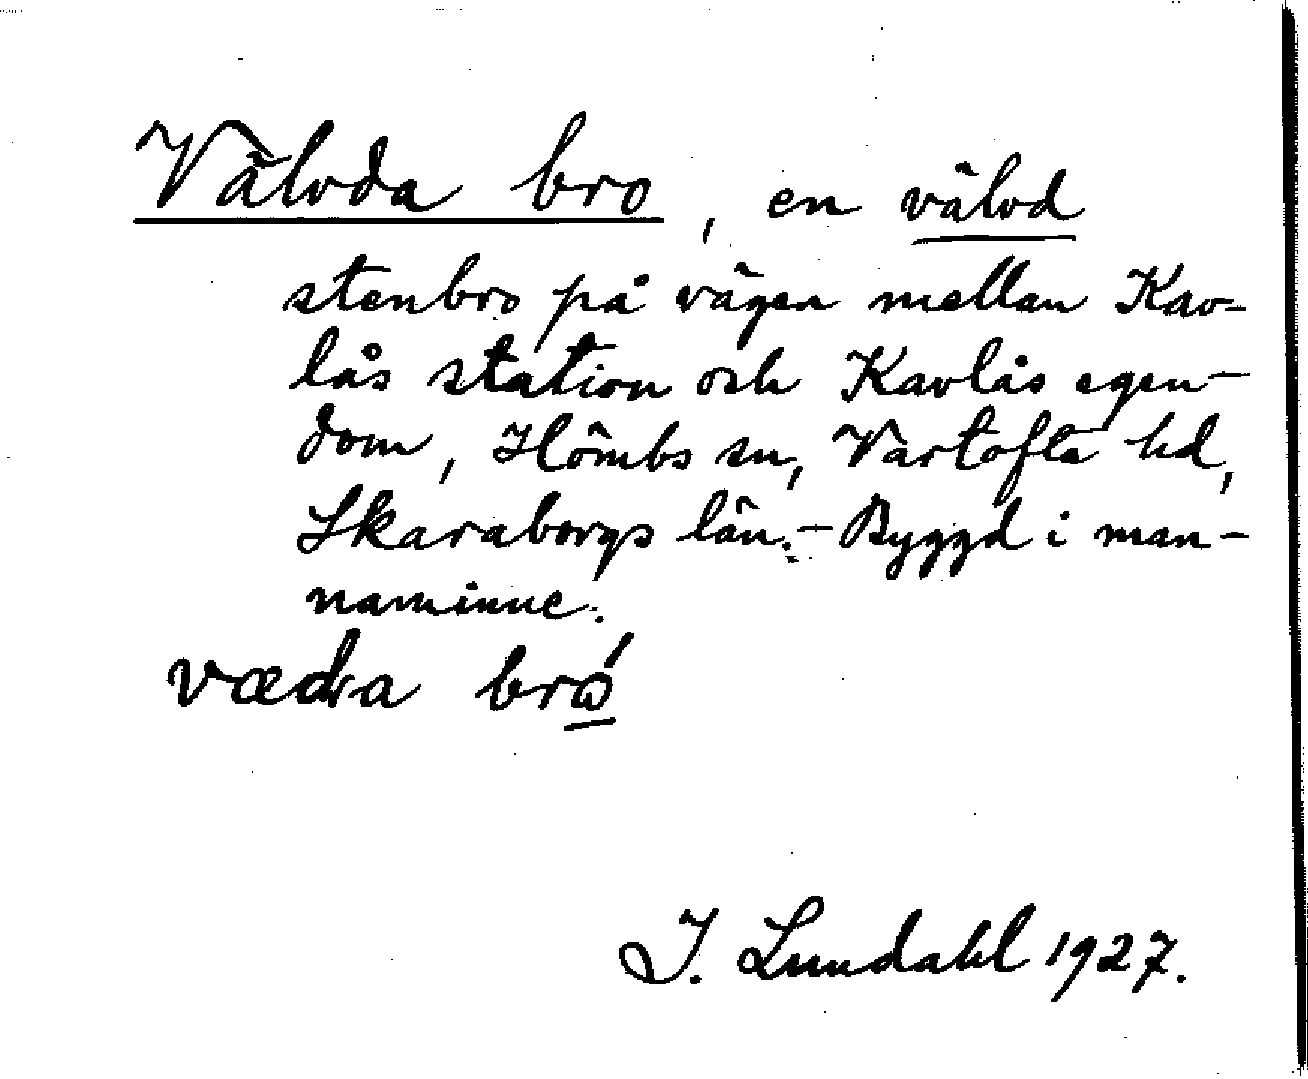 Välvda bro, en välvd
stenbro på vägen mellan Kav-
lås station och Kavlås egen-
dom, Hömbs sn, Vartofta hd,
Skaraborgs län. - Byggd i man-
naminne.
bro
J. Lundahl 1927.